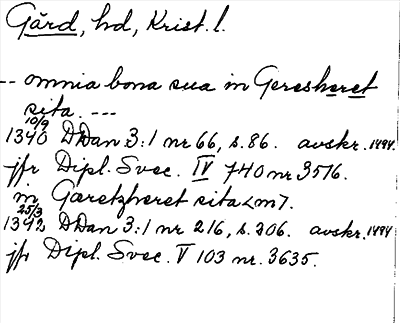 Gärd, hd, Krist. l.
-- omnia bona sua in Geresheret
sita. ---
10/9
1340 DDan 3:1 nr 66, s. 86. avskr. 1494.
jfr Dipl. Svec. IV 740 nr 3516.
in Gæretzheret sita<m>.
25/3
1342 DDan 3:1 nr 216, s. 206. avskr. 1494
jfr Dipl. Svec. V 103 nr. 3635.